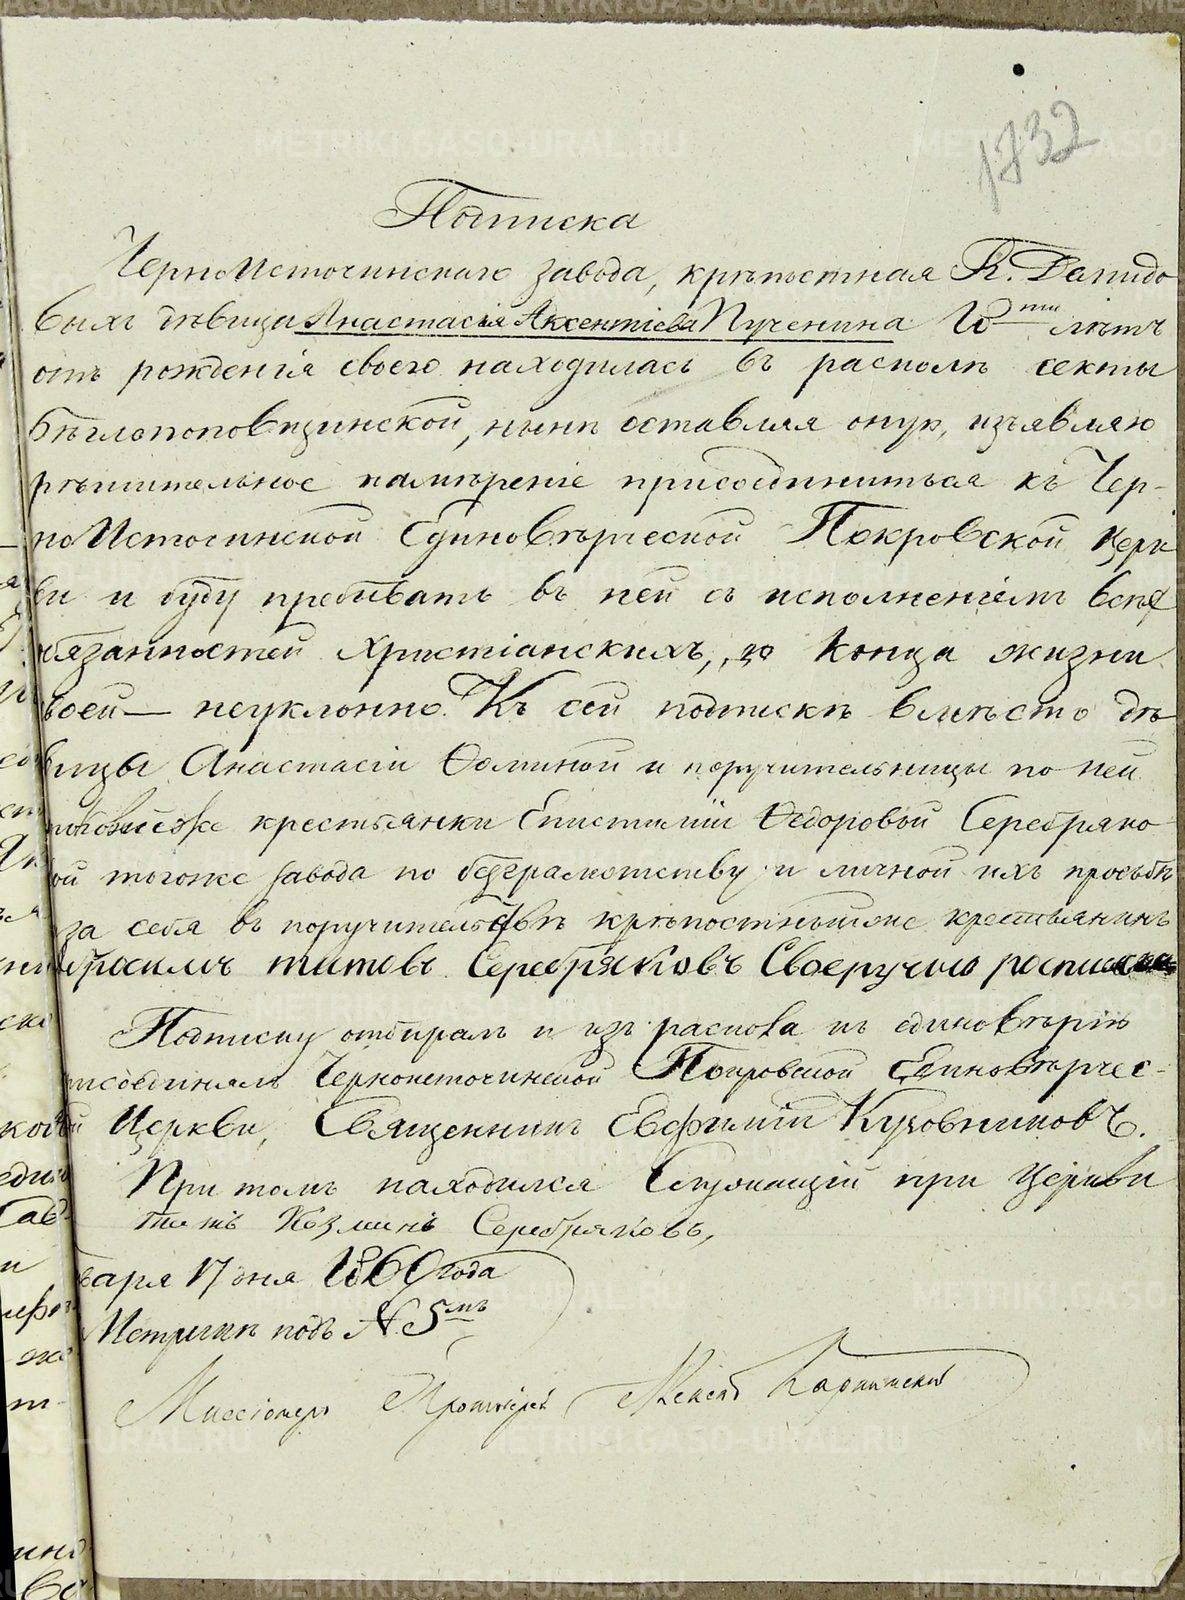 1732
Подписка
ЧерноИсточинскаго завода, крѣпостная К. Демидо
выхъ дѣвица Анастасія Аксентіева Пученина 18ти лѣтъ
отъ рожденія своего находилась въ расколѣ секты
бѣглопоповщинской, нынѣ оставляя оную, изъявляю
рѣшительное намѣреніе присоединиться къ Чер-
ноИсточинской Единовѣрческой Покровской Церк
ви и буду пребывать въ ней съ исполненіемъ всѣх
обязанностей Христіанскихъ, до конца жизни
своей — неуклонно. Къ сей подпискѣ вмѣсто дѣ
вицы Анастасіи Ѳоминой и поручительницы по ней
крестьянки Епистиміи Ѳедоровой Серебряко
вой тогоже завода по безграмотству и личной ихъ просьбѣ
за себя въ поручительствѣ крѣпостныйже крестьянинъ
Титовъ Серебряковъ Своеручно
Подписку отбиралъ и изъ раскола къ единовѣрію
присоединялъ Черноисточинской Покровской Единовѣрчес-
кой Церкви, Священникъ Евфимій Кузовниковъ.
При томъ находился Служащій при Церкви
Козминъ Серебряковъ,
варя 17 дня 1860 года
Метрикѣ подъ N. 5мъ
Миссіонеръ Протоіерей